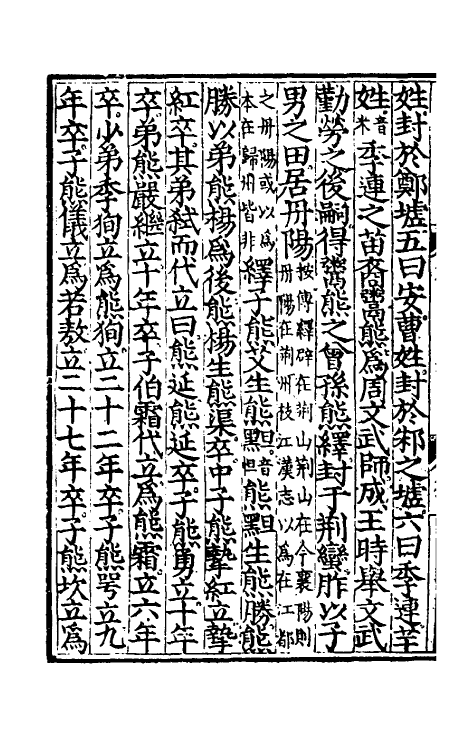 姓封於鄭墟五曰安曹姓封於邾之墟六曰季連芊
姓音米季連之苗裔鬻熊為周文武師成王時舉文武
勤勞之後嗣得鬻熊之曾孫熊繹封于荆蠻胙以子
男之田居丹陽按傳繹辟在荆山荆山在今襄陽則丹陽在荆州枝江漢志以為在江都
之丹陽或以為本在歸州皆非繹子熊艾生熊䵣音但熊䵣生熊勝熊
勝以弟熊楊為後熊楊生熊渠卒中子熊摯紅立摯
紅卒其弟弑而代立曰熊延熊延卒子熊勇立十年
卒弟熊嚴繼立十年卒子伯霜代立為熊霜立六年
卒少弟季狥立為熊狥立二十二年卒子熊咢立九
年卒子熊儀立為若敖立二十七年卒子熊坎立為